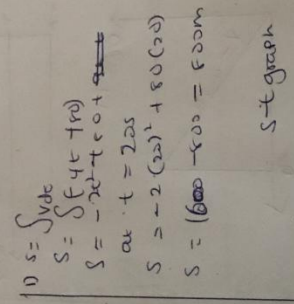 1) s = ∫vdt
s = ∫(-4t+80)
s = -2t²+80t
at t = 20s
s = -2(20)² + 80(20)
s = 1600 - 800 = 800m
s-t graph